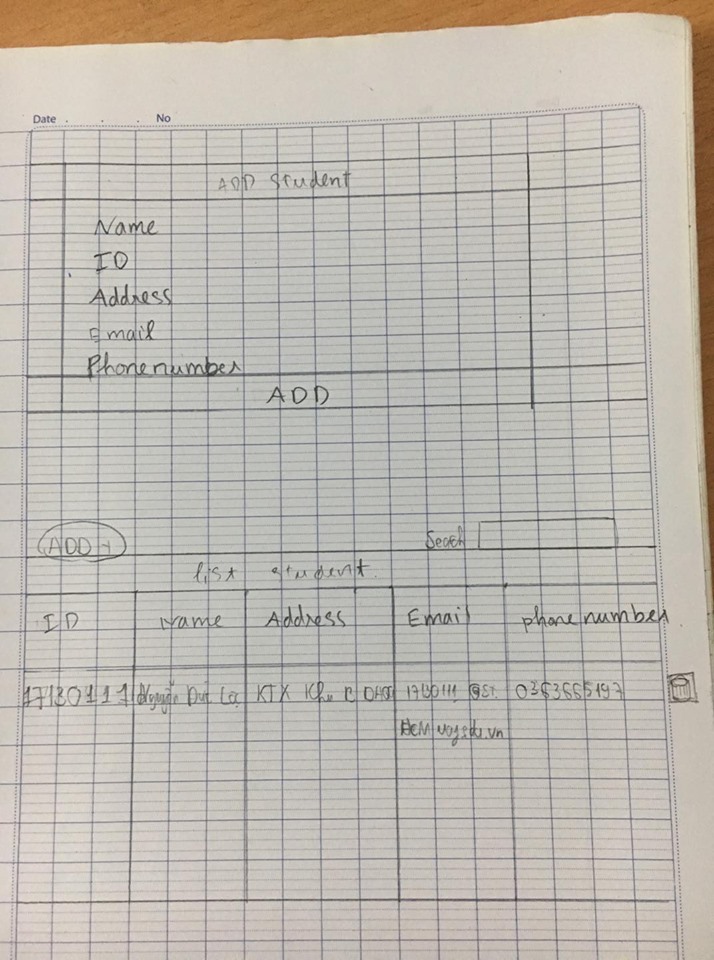 Date . . . No
ADD Student
Name
ID
Address
Email
Phone number
ADD
ADD +
Seach
list student.
ID Name Address Email phone number
17130111 Nguyễn Đức KTX Khu B 17130111 @ST. 0363665197
HCMuaf.edu.vn